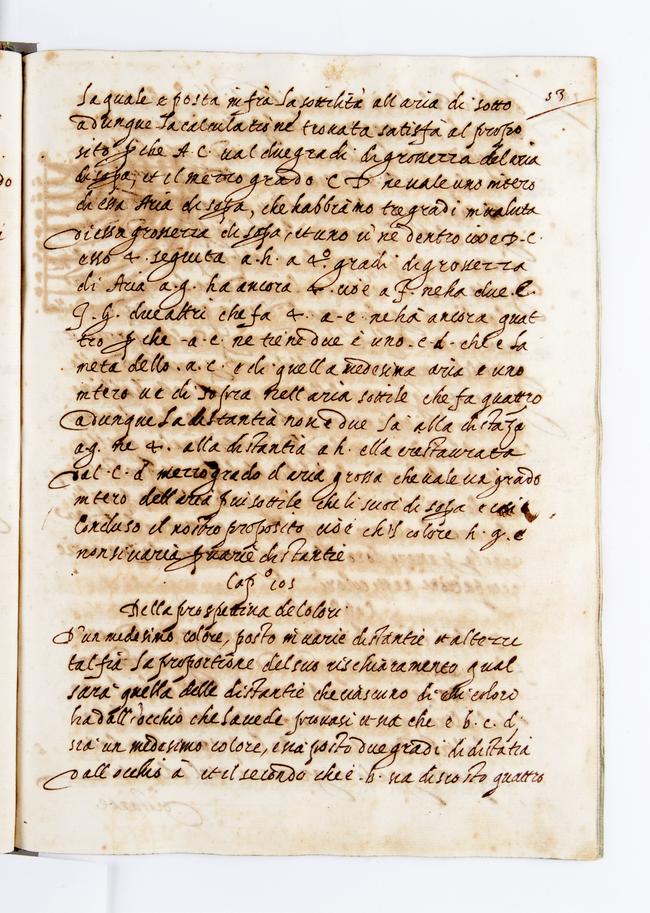 53
la quale e posta infra la sottilità all aria di sotto
adunque la calculatione trovata satisfà al propo
sito p che A. C. val due gradi di grosserra dell aria
di sopa, et il merro grado C D ne vale uno intero
di essa Aria di sopa, che habbiamo tre gradi in valuta
di essa grosserra di sopa, et uno vi ne dentro cioe D. C.
esso 4. seguita a. h. a 4.º gradi di grosserra
di Aria a. g. ha ancora 4. cioè a f. ne ha due. e.
f. g. due altri che fa 4. a. e. ne ha ancora quat
tro p che .a. c. ne tiene due è uno. c. d. che e la
metà dello .a. c. e di quella medesima aria e uno
intero ve di sopra nell aria sottile che fa quattro
adunque la distantia non e due la alla distaza
a g. ne 4. alla distantia a h. ella e restaurata
dal. C. d merro grado d aria grossa che vale un grado
intero dell aria piu sottile che li suoi di sopa e cosi è
Concluso il nostro proposito cioè ch'l colore h. g. e
non si varia p varie distantie
Cap.º 105
Della prospettiva de Colori
D'un medesimo colore, posto in varie distantie et alterre
tal fia la proportione del suo rischiaramento qual
sarà quella delle distantie che ciascuno di essi colori
ha dall'occhio che la vede provasi et sia che e b. c. d.
sia un medesimo colore, e sia posto due gradi di distatia
dall occhio à et il secondo che è .b. sia discosto quattro